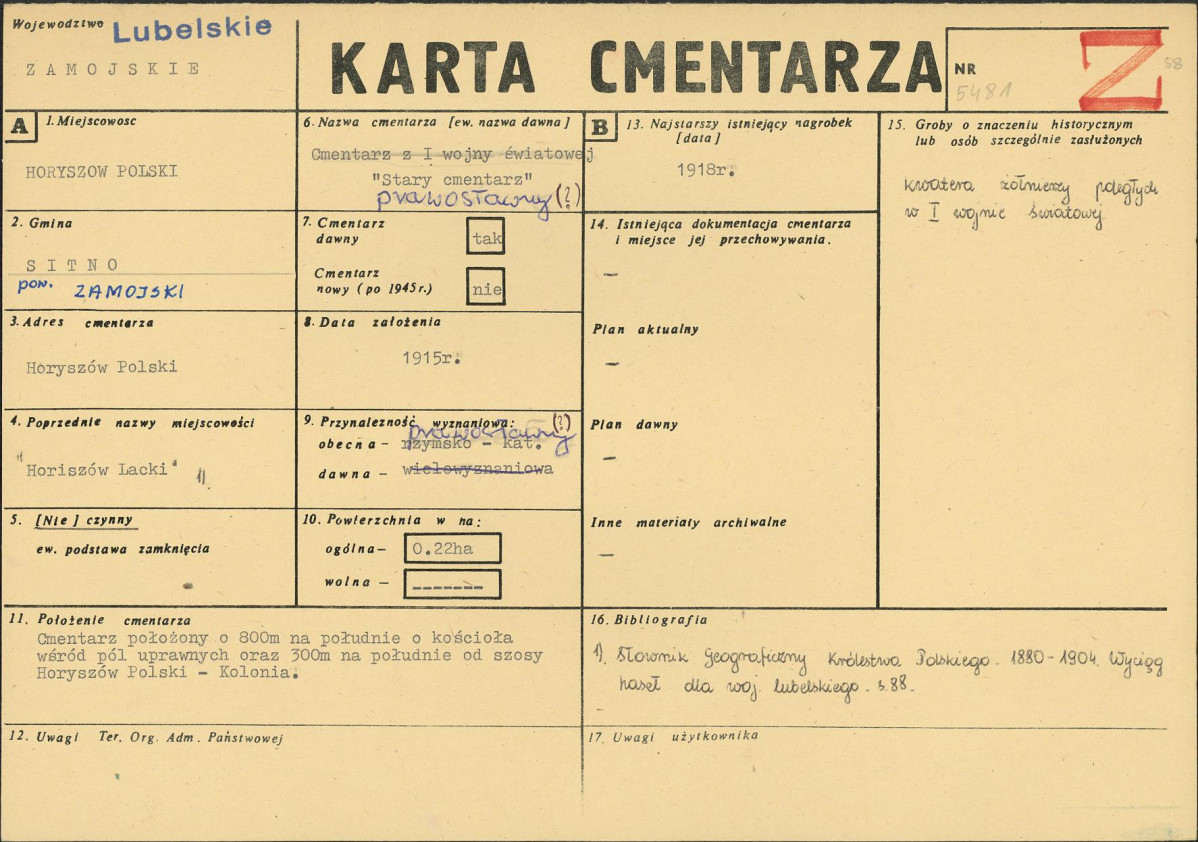 Wojewodztwo Lubelskie
ZAMOJSKIE
KARTA CMENTARZA
NR
5481
Z
58
A
1. Miejscowosc
HORYSZOW POLSKI
2. Gmina
SITNO
pow. ZAMOJSKI
3. Adres cmentarza
Horyszów Polski
4. Poprzednie nazwy miejscowości
"Horiszów Lacki" 1)
5. [Nie] czynny
ew. podstawa zamknięcia
-
6. Nazwa cmentarza [ew. nazwa dawna]
Cmentarz z I wojny światowej
"Stary cmentarz"
prawosławny (?)
7. Cmentarz
dawny
tak
Cmentarz
nowy (po 1945r.)
nie
8. Data założenia
1915r.
9. Przynalezność wyznaniowa: (?)
prawosławny
obecna - rzymsko - kat.
dawna - wielowyznaniowa
10. Powierzchnia w ha:
ogólna- 0.22ha
wolna - -------
11. Położenie cmentarza
Cmentarz położony o 800m na południe o kościoła
wśród pól uprawnych oraz 300m na południe od szosy
Horyszów Polski - Kolonia.
12. Uwagi Ter. Org. Adm. Państwowej
B
13. Najstarszy istniejący nagrobek
[data]
1918r.
14. Istniejąca dokumentacja cmentarza
i miejsce jej przechowywania.
-
Plan aktualny
-
Plan dawny
-
Inne materiały archiwalne
-
15. Groby o znaczeniu historycznym
lub osób szczególnie zasłużonych
kwatera żołnierzy poległych
w I wojnie światowej
16. Bibliografia
1). Słownik Geograficzny Królestwa Polskiego. 1880-1904. Wyciąg
haseł dla woj. lubelskiego. s.88.
17. Uwagi użytkownika